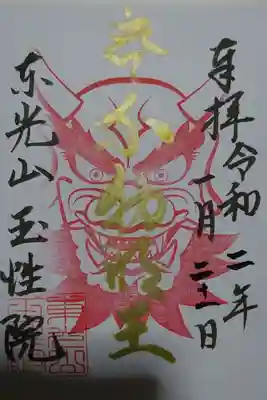 奉拝令和二年
一月二十一日
不動明王
東光山玉性院